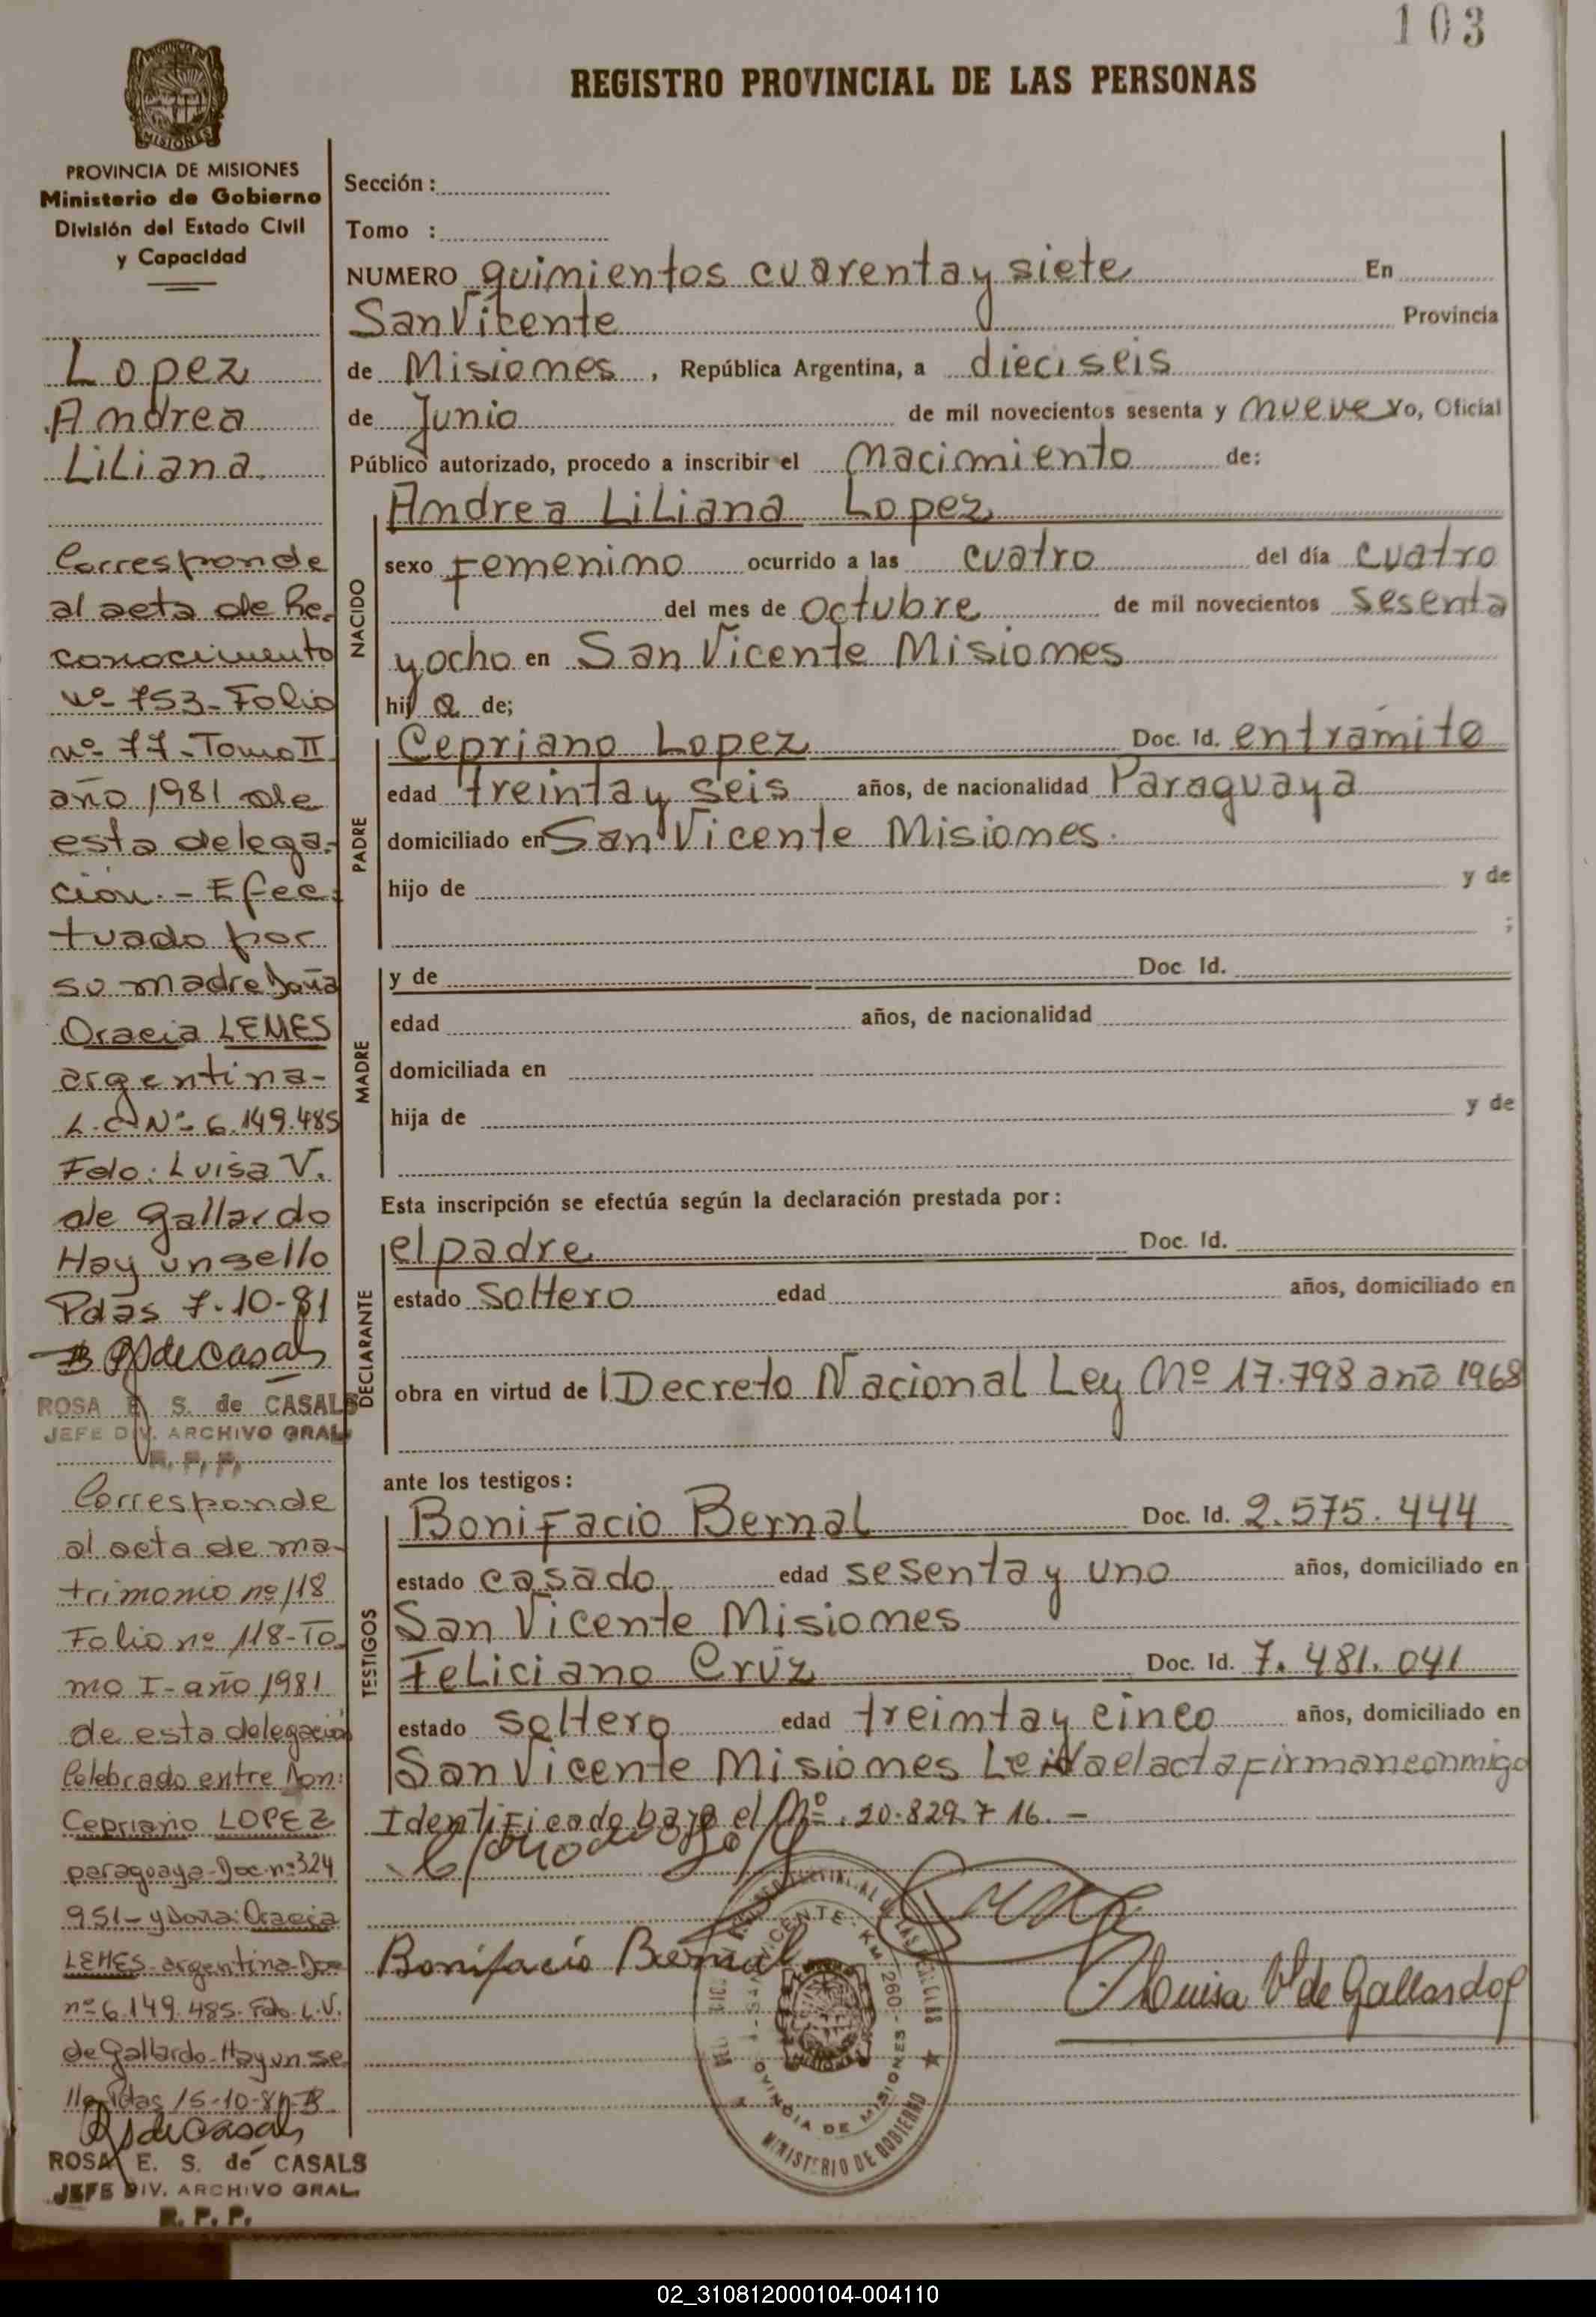 103
REGISTRO PROVINCIAL DE LAS PERSONAS
PROVINCIA DE MISIONES
Ministerio de Gobierno
División del Estado Civil
y Capacidad
Lopez
Andrea
Liliana
Corresponde
al acta de Re-
conocimiento
Nº 753-Folio
nº 77-Tomo II
año 1981 de
esta delega-
ción.- Efec-
tuado por
su madre Doña
Oracia LEMES
argentina-
L.C Nº 6.149.485
Fdo: Luisa V.
de Gallardo
Hay un sello
Pdas 7-10-81
ROSA E. S. de CASALS
JEFE DIV. ARCHIVO GRAL.
R. P. P.
Corresponde
al acta de ma-
trimonio nº 118
Folio nº 118-To
mo I-año 1981
de esta delegación
Celebrado entre Don:
Cepriano LOPEZ
paraguaya-Doc nº 324
951-y Doña: Oracia
LEMES-argentina-Doc
nº 6.149.485-Fdo-L.V.
de Gallardo-Hay un se
llo Pdas 15-10-81
ROSA E. S. de CASALS
JEFE DIV. ARCHIVO GRAL.
R. P. P.
Sección :
Tomo :
NUMERO quinientos cuarenta y siete En
San Vicente Provincia
de Misiones , República Argentina, a dieciseis
de Junio de mil novecientos sesenta y nueve Yo, Oficial
Público autorizado, procedo a inscribir el nacimiento de:
NACIDO
Andrea Liliana Lopez
sexo Femenino ocurrido a las cuatro del día cuatro
del mes de octubre de mil novecientos sesenta
y ocho en San Vicente Misiones
hij a de;
PADRE
Cepriano Lopez Doc. Id. en tramite
edad treinta y seis años, de nacionalidad Paraguaya
domiciliado en San Vicente Misiones
hijo de y de
;
MADRE
y de Doc. Id.
edad años, de nacionalidad
domiciliada en
hija de y de
Esta inscripción se efectúa según la declaración prestada por:
DECLARANTE
el padre Doc. Id.
estado soltero edad años, domiciliado en
obra en virtud de Decreto Nacional Ley Nº 17.798 año 1968
ante los testigos:
TESTIGOS
Bonifacio Bernal Doc. Id. 2.575.444
estado casado edad sesenta y uno años, domiciliado en
San Vicente Misiones
Feliciano Cruz Doc. Id. 7.481.041
estado soltero edad treinta y cinco años, domiciliado en
San Vicente Misiones Leida el acta firman conmigo
Identificado bajo el Nº .20.829.716.-
Bonifacio Bernal
Luisa V de Gallardo
SAN VICENTE - KM 260 - MISIONES
PROVINCIA DE MISIONES
MINISTERIO DE GOBIERNO
02_310812000104-004110